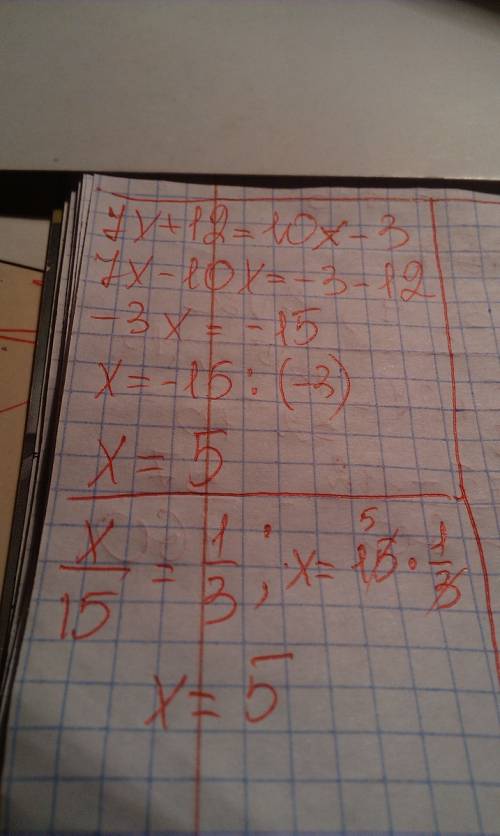 7x+12=10x-3
7x-10x=-3-12
-3x=-15
x=-15:(-3)
x=5
x/15=1/3; x=15·1/3
5
x=5